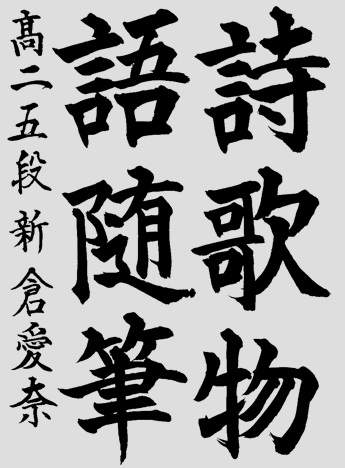 詩歌物
語随筆
高二五段新倉愛奈